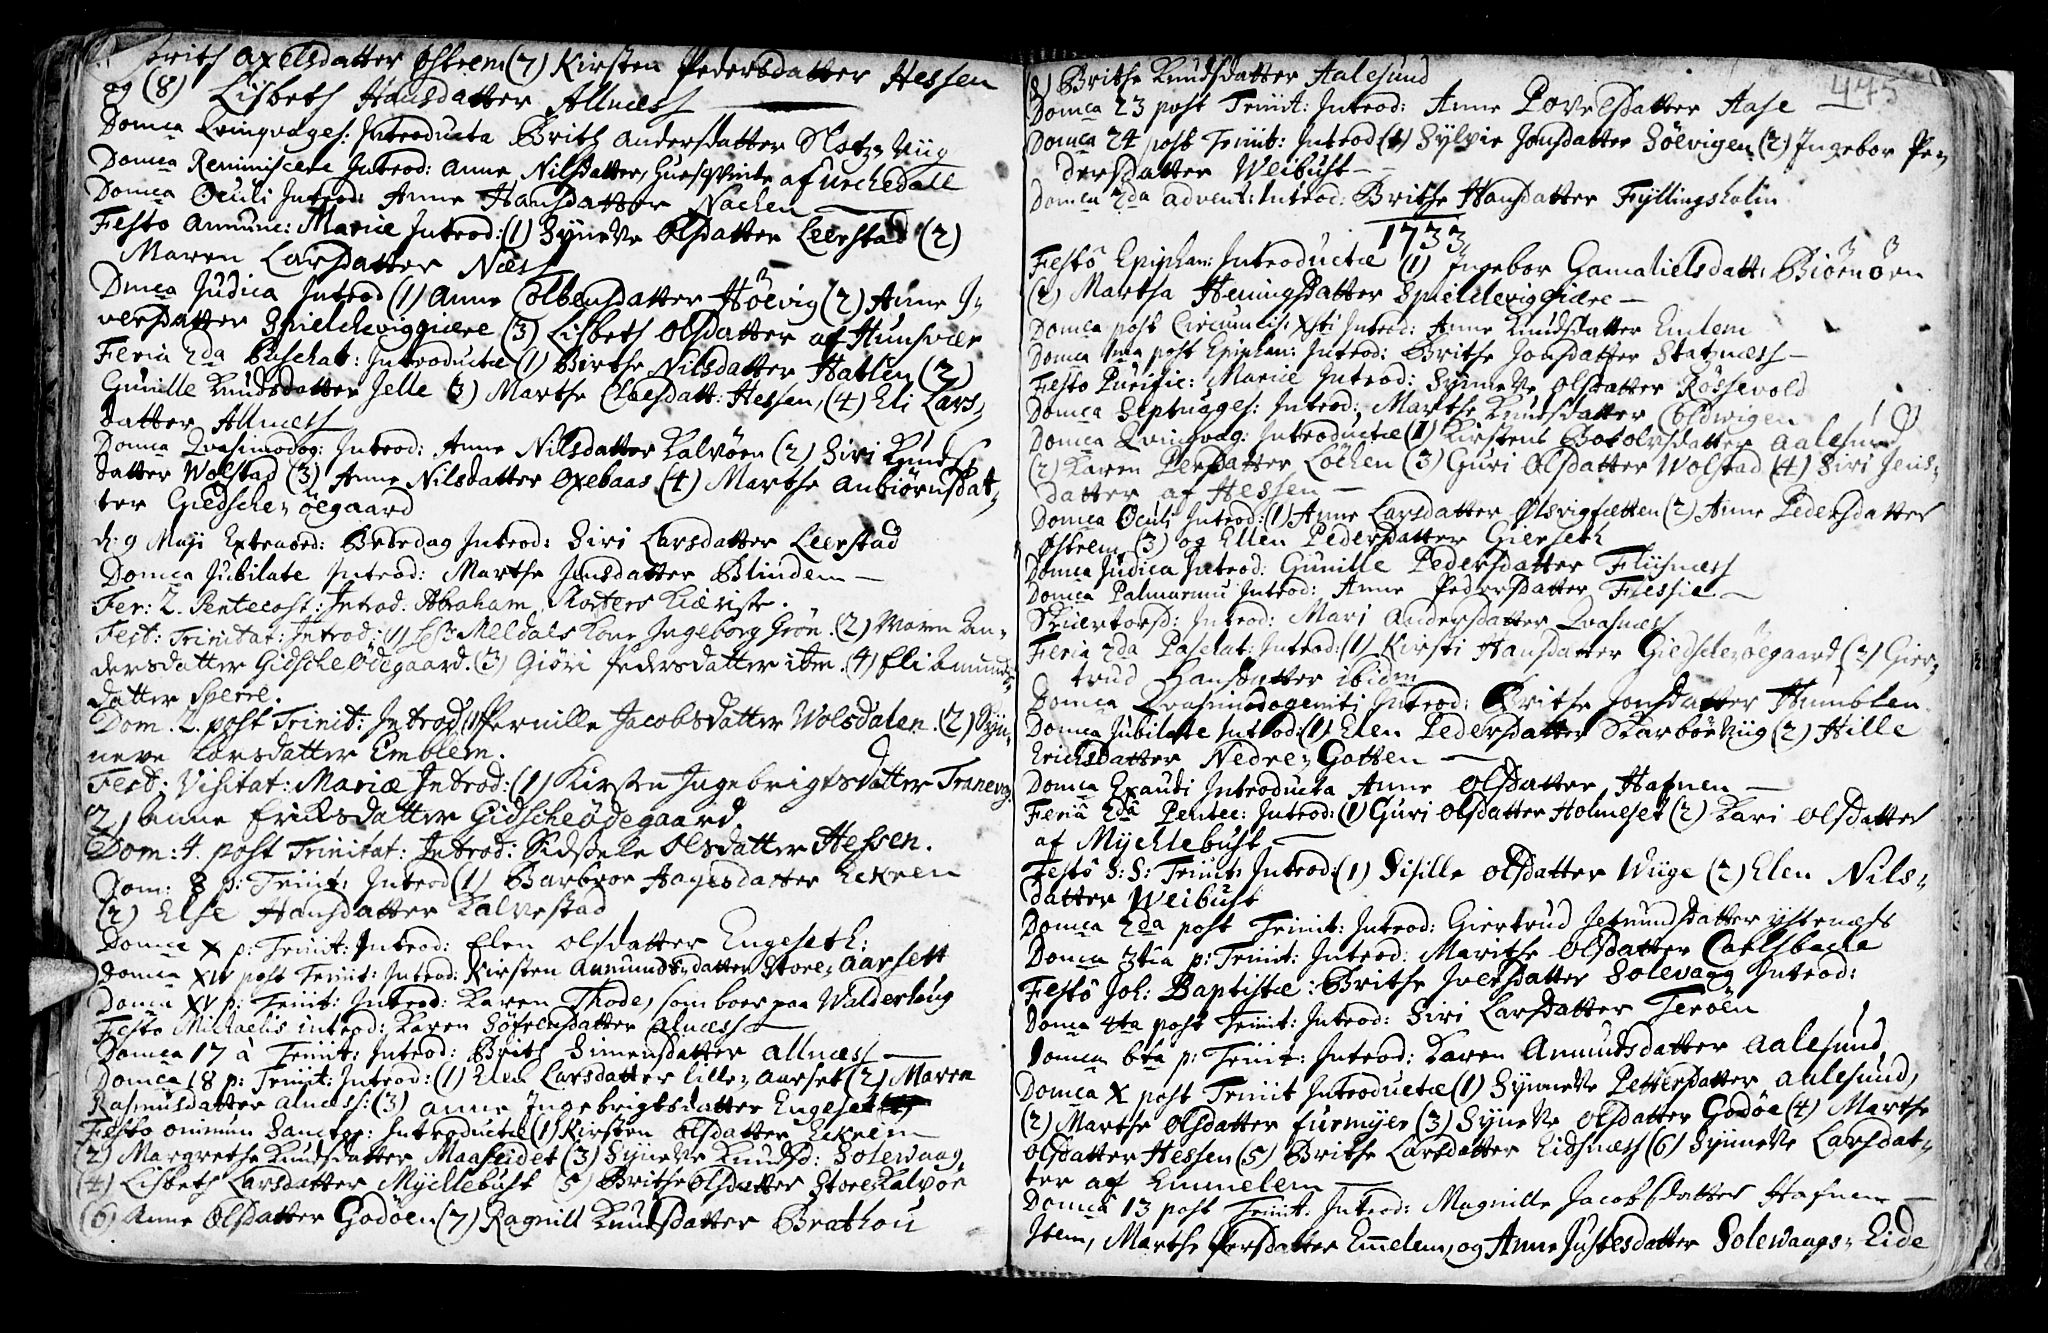 Brith Axelsdatter Østrem (7) Kirsten Pedersdatter Hessen
og (8) Lisbeth Hansdatter Allnæss
Domca Qvinqvages: Introducta Brith Andersdatter
Domca Reminiscere Introd: Anne Nilsdatter,
Domca Oculi Introd: Anne Hansdatter Nachen
Festo Annunc: Mariæ Introd: (1) Synneve Olsdatter Leerstad (2)
Maren Larsdatter Næss
Dmca Judica Introd (1) Anne Colbensdatter Höevig (2) Anne I-
versdatter Spieldeviggiære (3) Lisbeth Olsdatter af Hunsvær
Feria 2da Paschat: Introductæ (1) Birthe Nilsdatter Hatlen (2)
Gunille Knudsdatter Jelle 3) Marthe Claesdatt: Hessen, (4) Eli Lars-
datter Allnæss
Domca Qvasimodog: Introd: Anne Nilsdatter Kalvöen (2) Siri Knuds
datter Wolstad (3) Anne Nilsdatter Oxebaas (4) Marthe Anbiörnsdat-
ter Giedsche-Öegaard
d: 9 Maji Extraord: Bededag Introd: Siri Larsdatter Leerstad
Domca Jubilate Introd: Marthe Jensdatter Blindem
Fer: 2. Pentecost: Introd: Abraham
Fest: Trinitat: Introd: (1) Meldals Kone Ingeborg Grön. (2) Maren An-
dersdatter Gidscheödegaard. (3) Giöri Pedersdatter ibm. (4) Eli Amunds
datter Sperre.
Dom. 2. post Trinit: Introd (1) Pernille Jacobsdatter Wolsdalen. (2) Syn-
neve Larsdatter Emblem.
Fest: Visitat: Mariæ Introd: (1) Kirsten Ingebrigtsdatter Tranevg.
2) Anne Ericksdatter Gidscheödegaard
Dom: 4. post Trinitat: Introd: Sidsele Olsdatter Hessen.
Dom: 8 p: Trinit: Introd (1) Barbroe Hagesdatter Eckren
(2) Else Hansdatter Kalvestad
Domca X p: Trinit: Introd: Elen Olsdatter Engeseth:
Domca XIV post Trinit: Introd: Kirsten Anmundsdatter Store-Aarsett
Domca XV p: Trinit: Introd: Karen Thode, som boer paa Walderhoug
Festo Michaelis introd: Karen Söfrensdatter Alnæss
Domca 17 à Trinit: Introd: Brith Simensdatter Allnæss
Domca 18 p: Trinit: Introd: (1) Elen Larsdatter Lille-Aarset (2) Maren
Rasmusdatter Alnæss: (3) Anne Ingebrigtsdatter Engeset
Festo omnium Sanctor: Introductæ (1) Kirsten Olsdatter Eckrein
(2) Margrethe Knudsdatter Maaseidet (3) Synneve Knudsd: Solevaag
(4) Lisbeth Larsdatter Mychlebust (5) Brithe Olsdatter Store Kalvöe
(6) Anne Olsdatter Godöen (7) Ragnill Knudsdatter Brathou
475
8) Brithe Knudsdatter Aalesund
Domca 23 post Trinit: Introd: Anne Povelsdatter Aase
Domca 24 post Trinit: Introd (1) Sylvie Jonsdatter Söevigen (2) Ingebor Pe-
dersdatter Weibust
Domca 2da Advent: Introd: Brithe Hansdatter Fyllingsholm
1733
Festô Epiphan: Introductæ (1) Ingebor Gamalielsdatt: Biörnöen
(2) Martha Heningsdatter Spieldeviggiære
Domca post Circumcis: Xsti Introd: Anne Knudsdatter Emlem
Domca 1ma post Epiphan: Introd: Brithe Jonsdatter Statznæss
Festo Purific: Mariæ Introd: Synneve Olsdatter Rössevold
Domca Septuages: Introd: Marthe Knudsdatter
Domca Qvinqvag: Introductæ (1) Kirstens Botolvsdatter Aalesund
(2) Karen Persdatter Löchen (3) Guri Olsdatter Wolstad (4) Siri Jens-
datter af Hessen
Domca Oculi Introd: (1) Anne Larsdatter Olsvigfætten (2) Anne Pedersdatter
Østrem (3) og Ellen Pedersdatter Gierseth
Domca Judica Introd: Gunille Pedersdatter Fliisnæss
Domca Palmarum Introd: Anne Pedersdatter Flessie
Skiertorsd: Introd: Mari Andersdatter Qvasnæss
Feria 2da Paschat: Introd: (1) Kirsti Hansdatter Giedsche-öegaard (2) Gier-
trud Hansdatter ibidm
Domca Qvasimodogeniti Introd: Brithe Jonsdatter Humblen
Domca Jubilate Introd: (1) Elen Pedersdatter Skarbövig (2) Hille
Ericksdatter Nedre-Gotten
Domca Exaudi Introducta Anne Olsdatter Hafnen
Feriâ 2dâ Pentec: Introd: (1) Guri Olsdatter Holmeset (2) Kari Olsdatter
af Mychlebust
Festô S: S: Trinit: Introd: (1) Sisille Olsdatter Wiige (2) Elen Nils-
datter Weibust
Domca 2da post Trinit: Introd: Giertrud Jetmundsdatter Ystenæss
Domca 3tia p: Trinit: Introd: Marithe Olsdatter Carlsbache
Festô Joh: Baptistæ: Brithe Iversdatter Solevaag Introd:
Domca 4ta post Trinit: Introd: Siri Larsdatter Teröen
Domca 6ta p: Trinit: Introd: Karen Anmundsdatter Aalesund
Domca X post Trinit Introductæ (1) Synneve Pettersdatter Aalesund,
(2) Marthe Olsdatter Furmyer (3) Synneve Olsdatter Godöe (4) Marthe
Olsdatter Hessen (5) Brithe Larsdatter Eidsnæss (6) Synneve Larsdat-
ter af Emmelem
Domca 13 post Trinit: Introd: Magnille Jacobsdatter Hafnen
Item, Marthe Persdatter Em̅elem, og Anne Justesdatter Solewaags-Eide